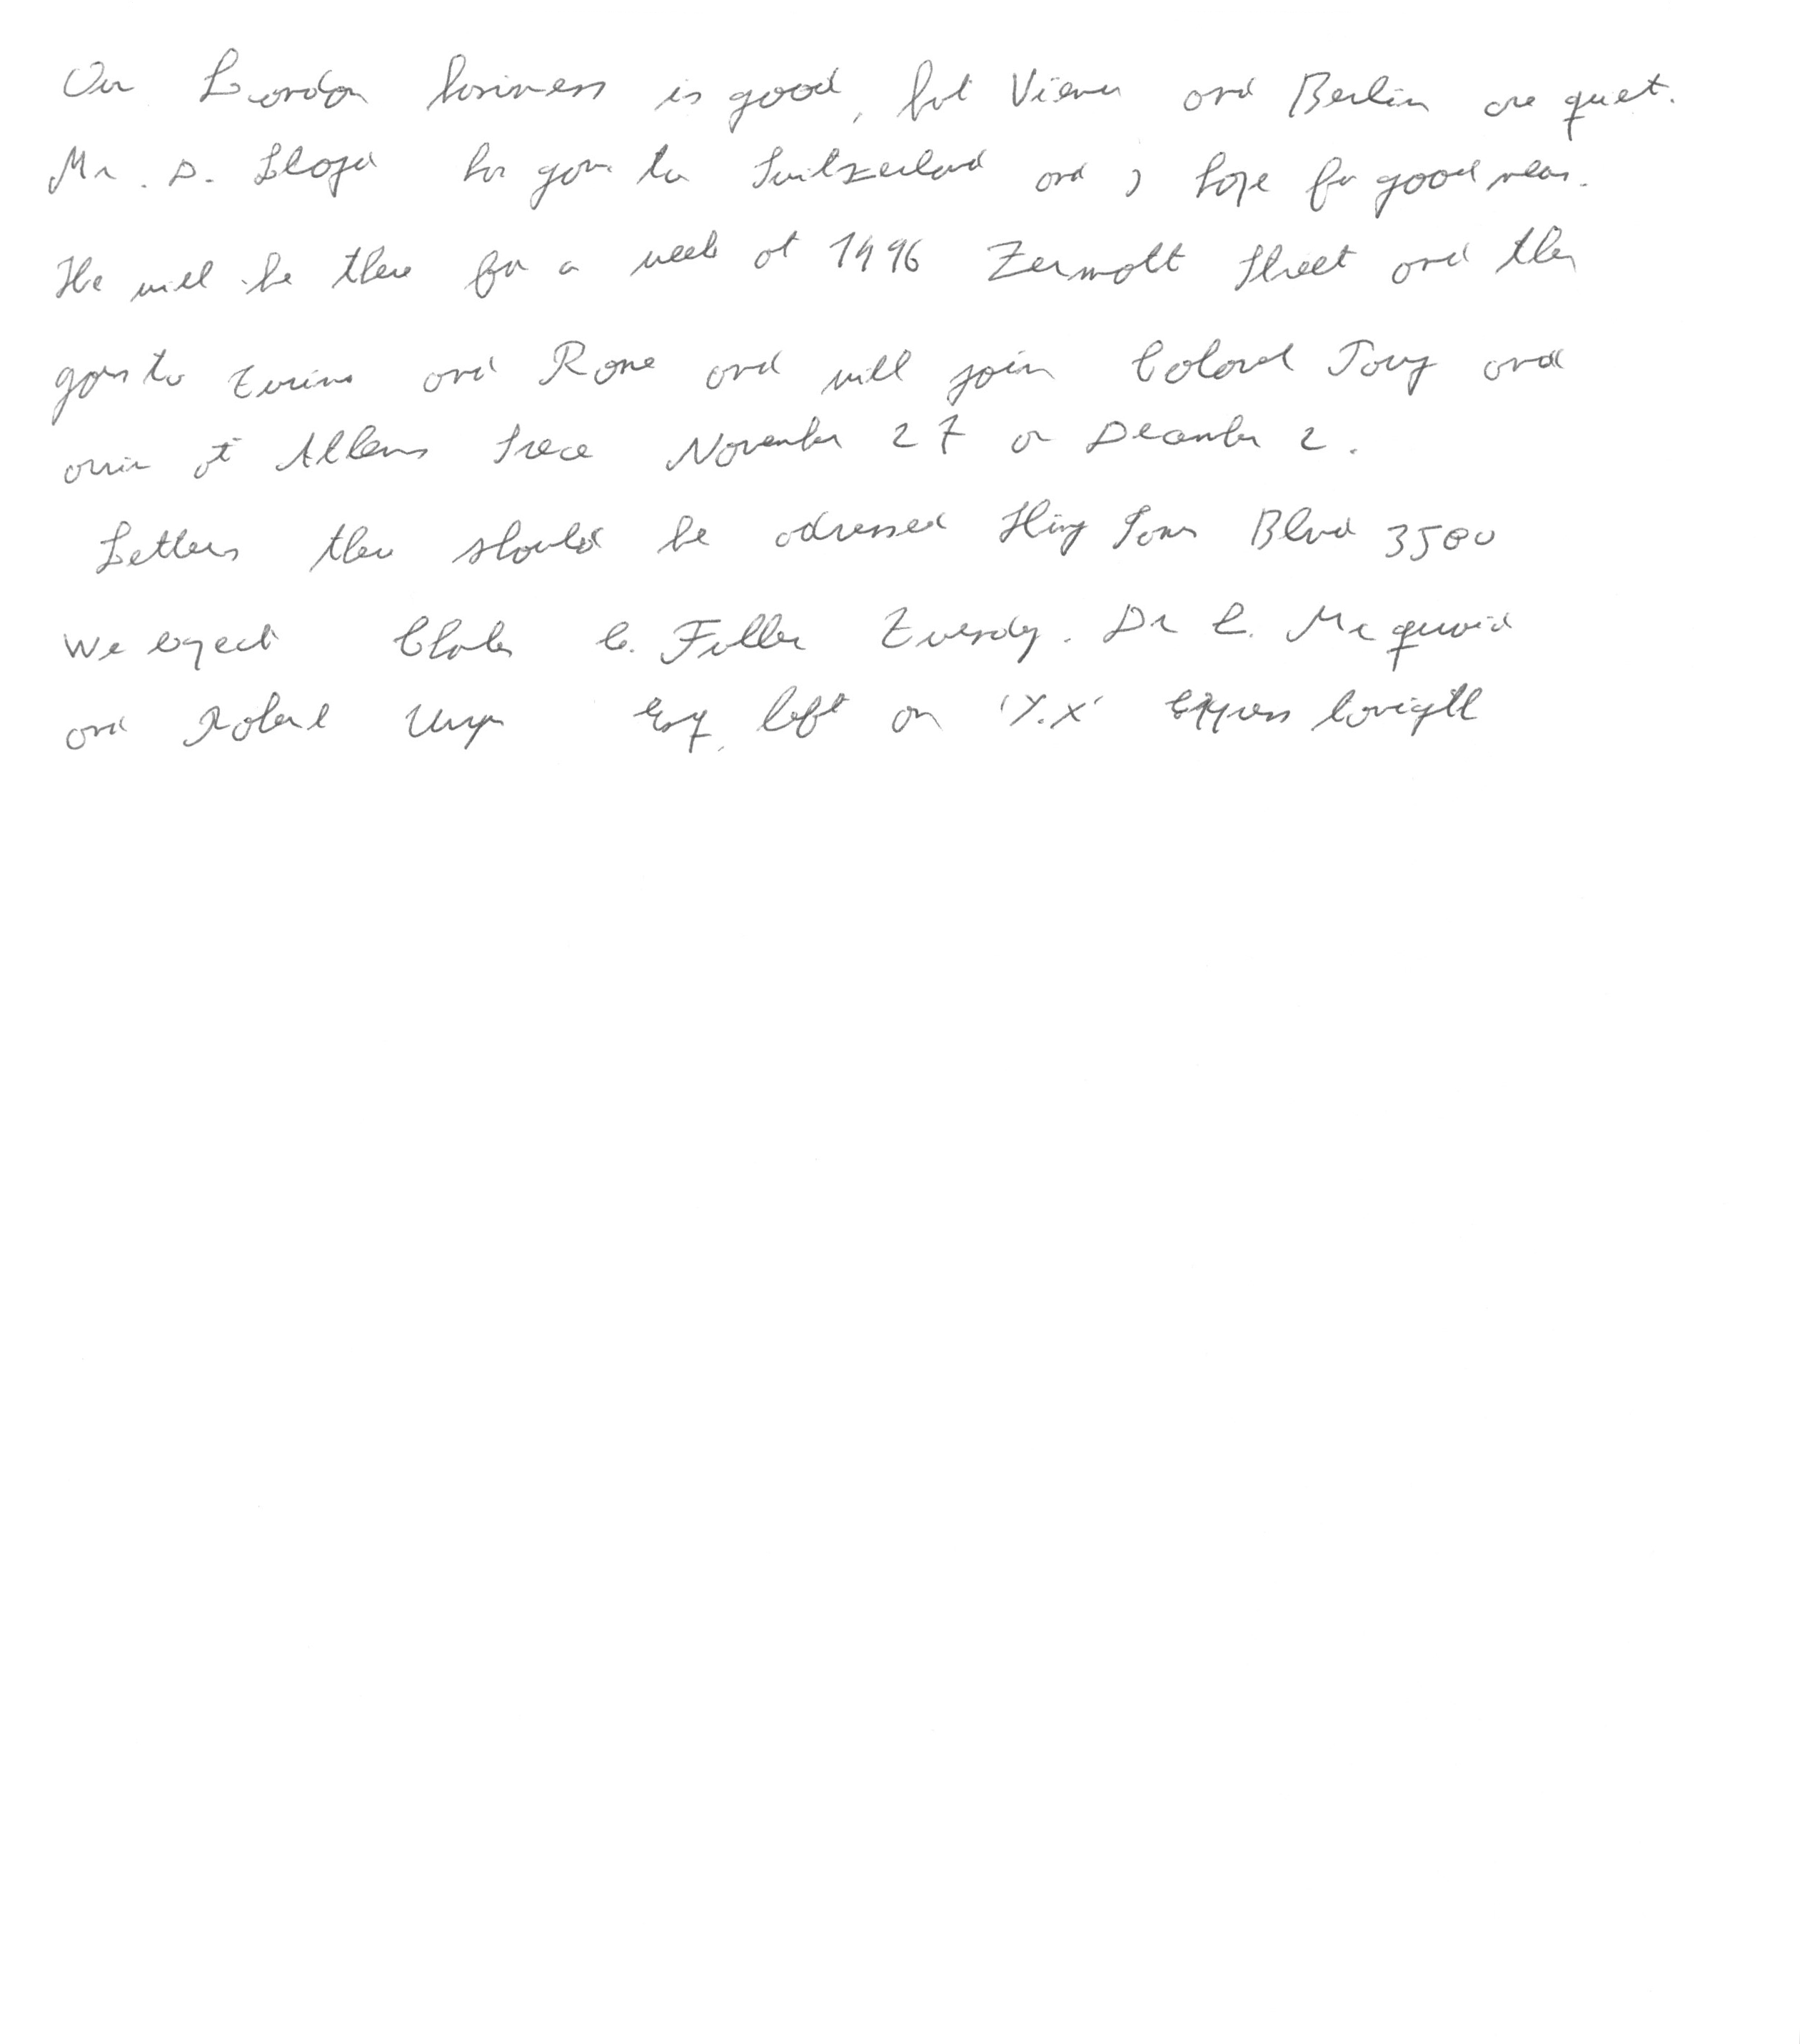 Our London business is good, but Vienna and Berlin are quiet.
Mr. D. Lloyd has gone to Switzerland and I hope for good news.
He will be there for a week at 1496 Zermott Street and then
goes to Turin and Rome and will join Colonel Parry and
arrive at Athens Greece November 27 or December 2.
Letters there should be adressed King James Blvd 3580
We expect Charles E. Fuller Tuesday. Dr L. McQuaid
and Robert Unger Esq, left on 'Y.X' Express tonight